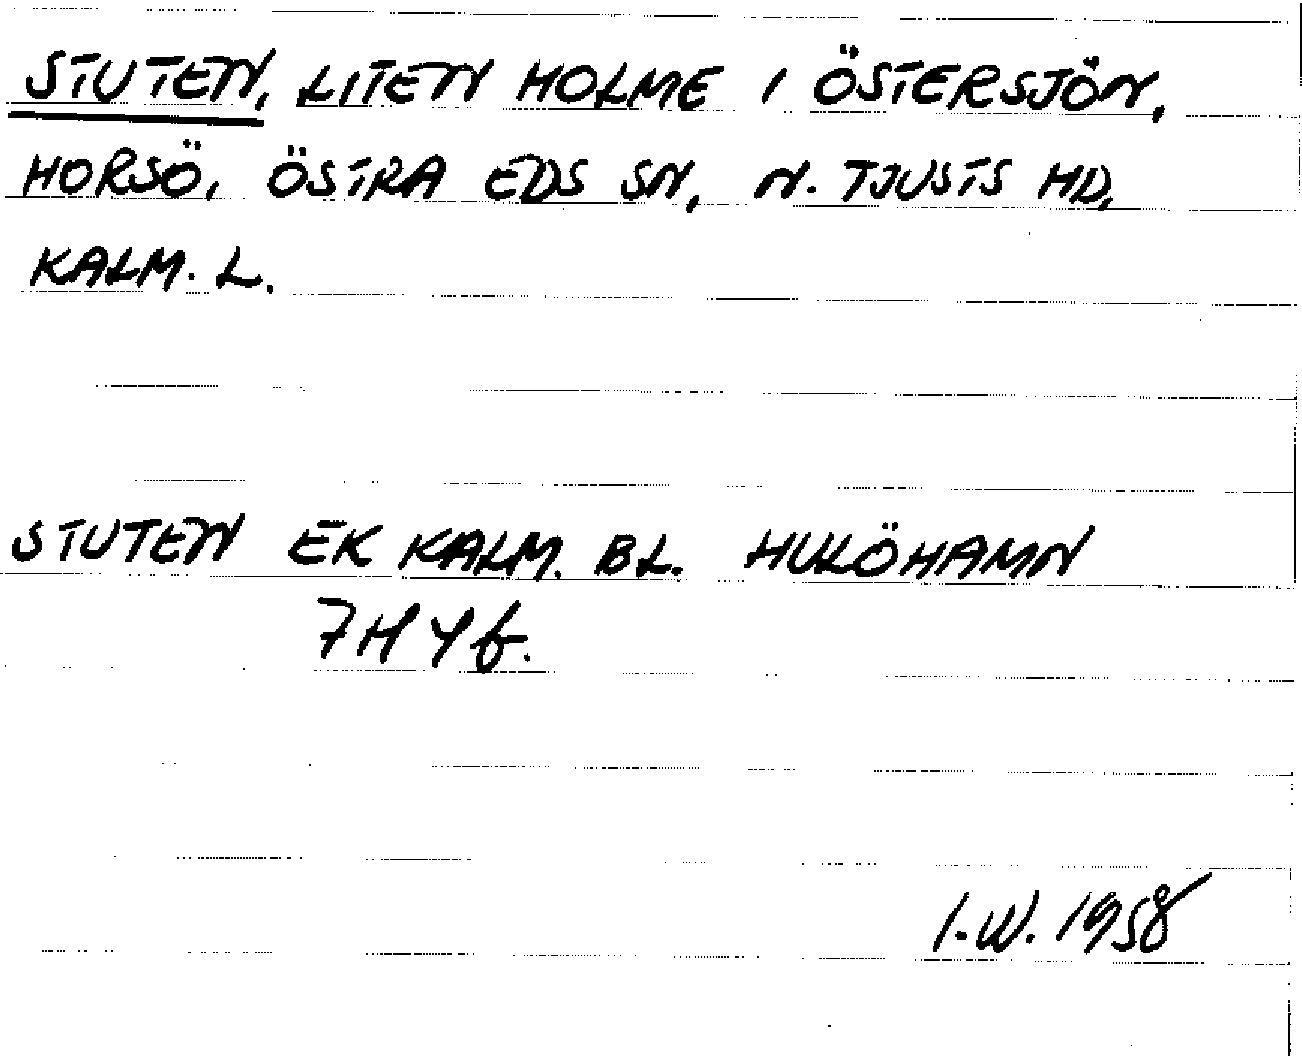 STUTEN, LITEN HOLME I ÖSTERSJÖN,
HORSÖ, ÖSTRA EDS SN, N. TJUSTS HD,
KALM. L.
STUTEN EK KALM. BL. HULÖHAMN
7H 4f.
I.W. 1958